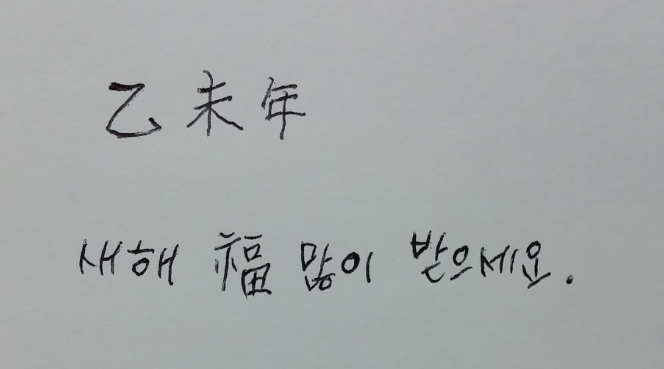 乙未年
새해 福 많이 받으세요.